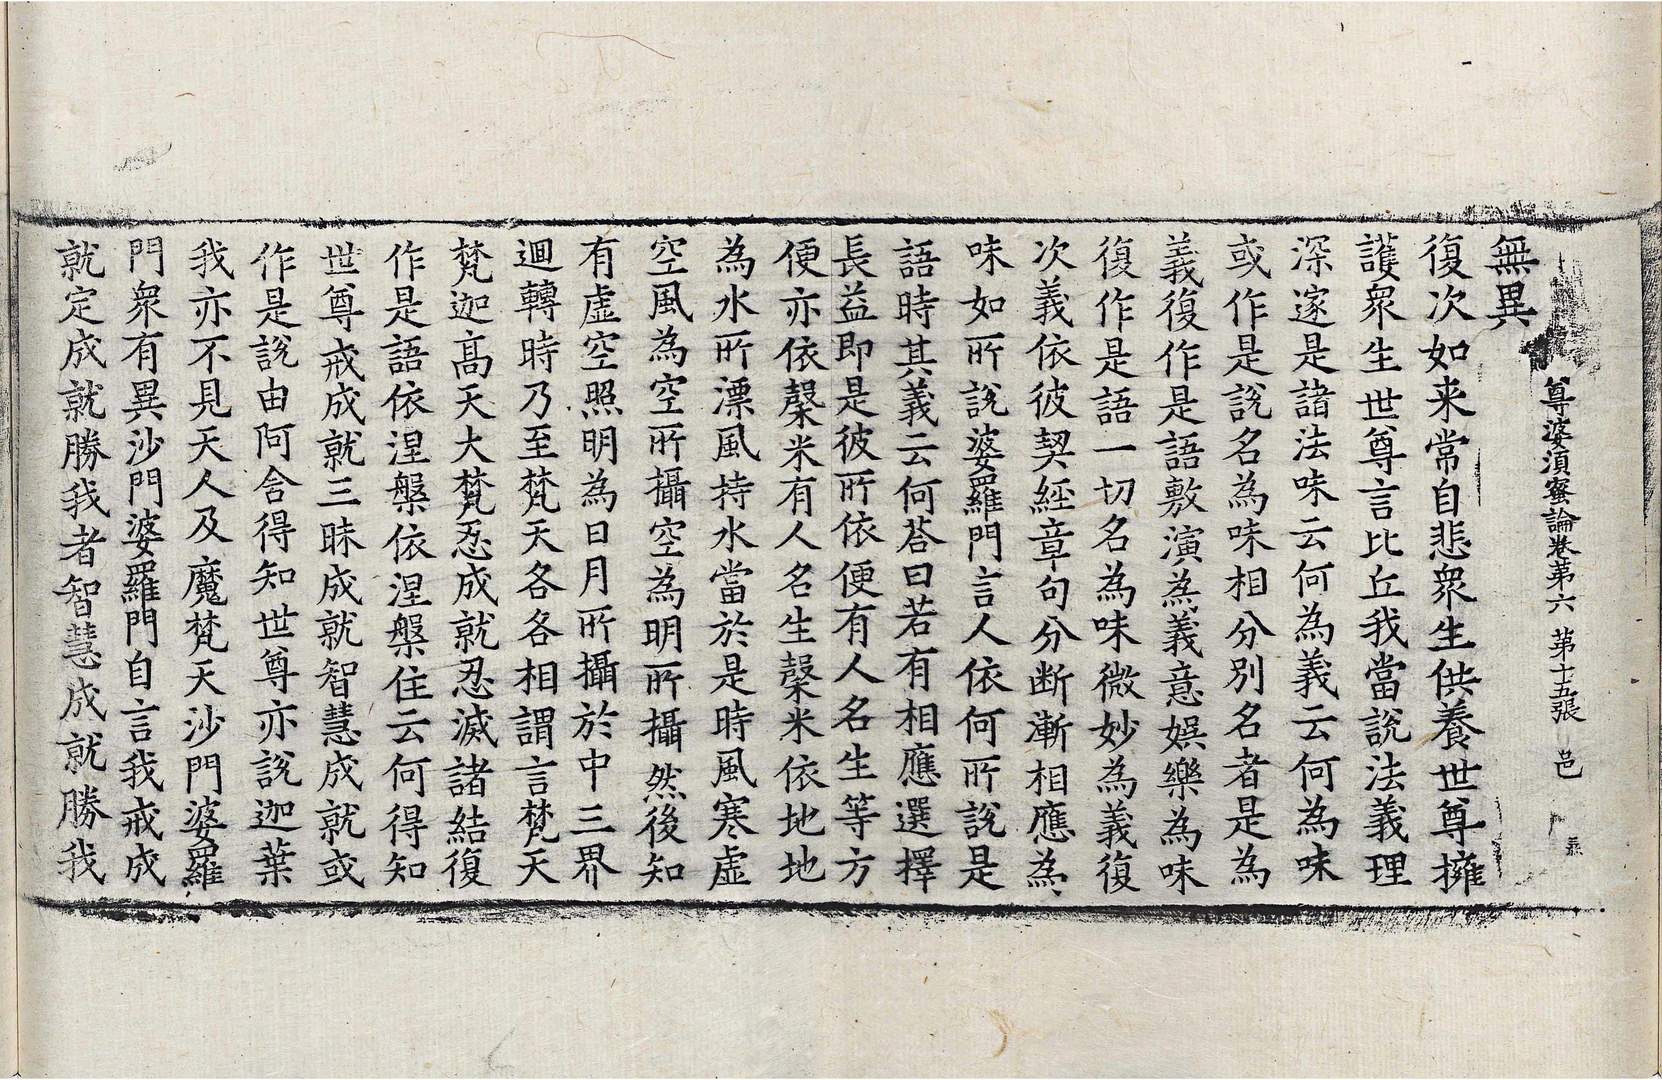 尊婆須蜜論卷第六 第十五張 邑
無異
復次如来常自悲衆生供養世尊擁
護衆生世尊言比丘我當說法義理
深邃是諸法味云何為義云何為味
或作是說名為味相分別名者是為
義復作是語敷演為義意娛樂為味
復作是語一切名為味微妙為義復
次義依彼契經章句分断漸相應為
味如所說婆羅門言人依何所說是
語時其義云何荅曰若有相應選擇
長益即是彼所依便有人名生等方
便亦依槃米有人名生槃米依地地
為水所漂風持水當於是時風寒虛
空風為空所攝空為明所攝然後知
有虛空照明為日月所攝於中三界
迴轉時乃至梵天各各相謂言梵天
梵迦高天大梵忍成就忍滅諸結復
作是語依涅槃依涅槃住云何得知
世尊戒成就三昧成就智慧成就或
作是說由阿含得知世尊亦說迦葉
我亦不見天人及魔梵天沙門婆羅
門衆有異沙門婆羅門自言我戒成
就定成就勝我者智慧成就勝我